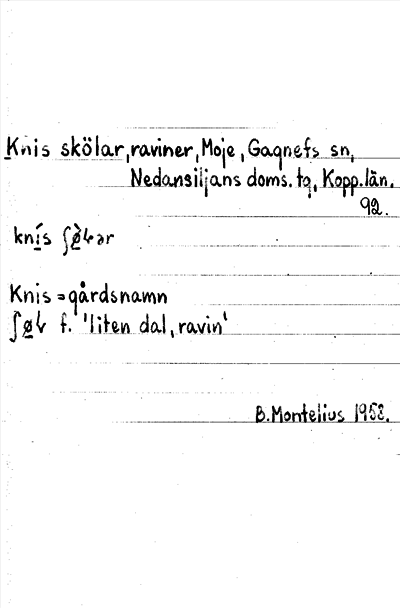 Knis skölar, raviner, Moje, Gagnefs sn,
Nedansiljans doms. tg, Kopp. län.
92.
knís ʃø̀ɬər
Knis = gårdsnamn
ʃøɬ f. 'liten dal, ravin'
B. Montelius 1958.